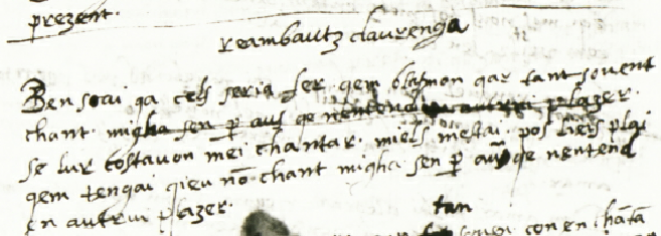 prezent.
reambautz daurenga
Ben sai qa cels seria fer qem blasmon qar tant sovent
chant. migha sen per aus qe nentend en autrui plazer.
se lur costavon mei chantar. miels mestai. pos lieis plai
qem tengai qieu no chant migha. sen per aus qe nentend
en autrui plazer.
tan
con en